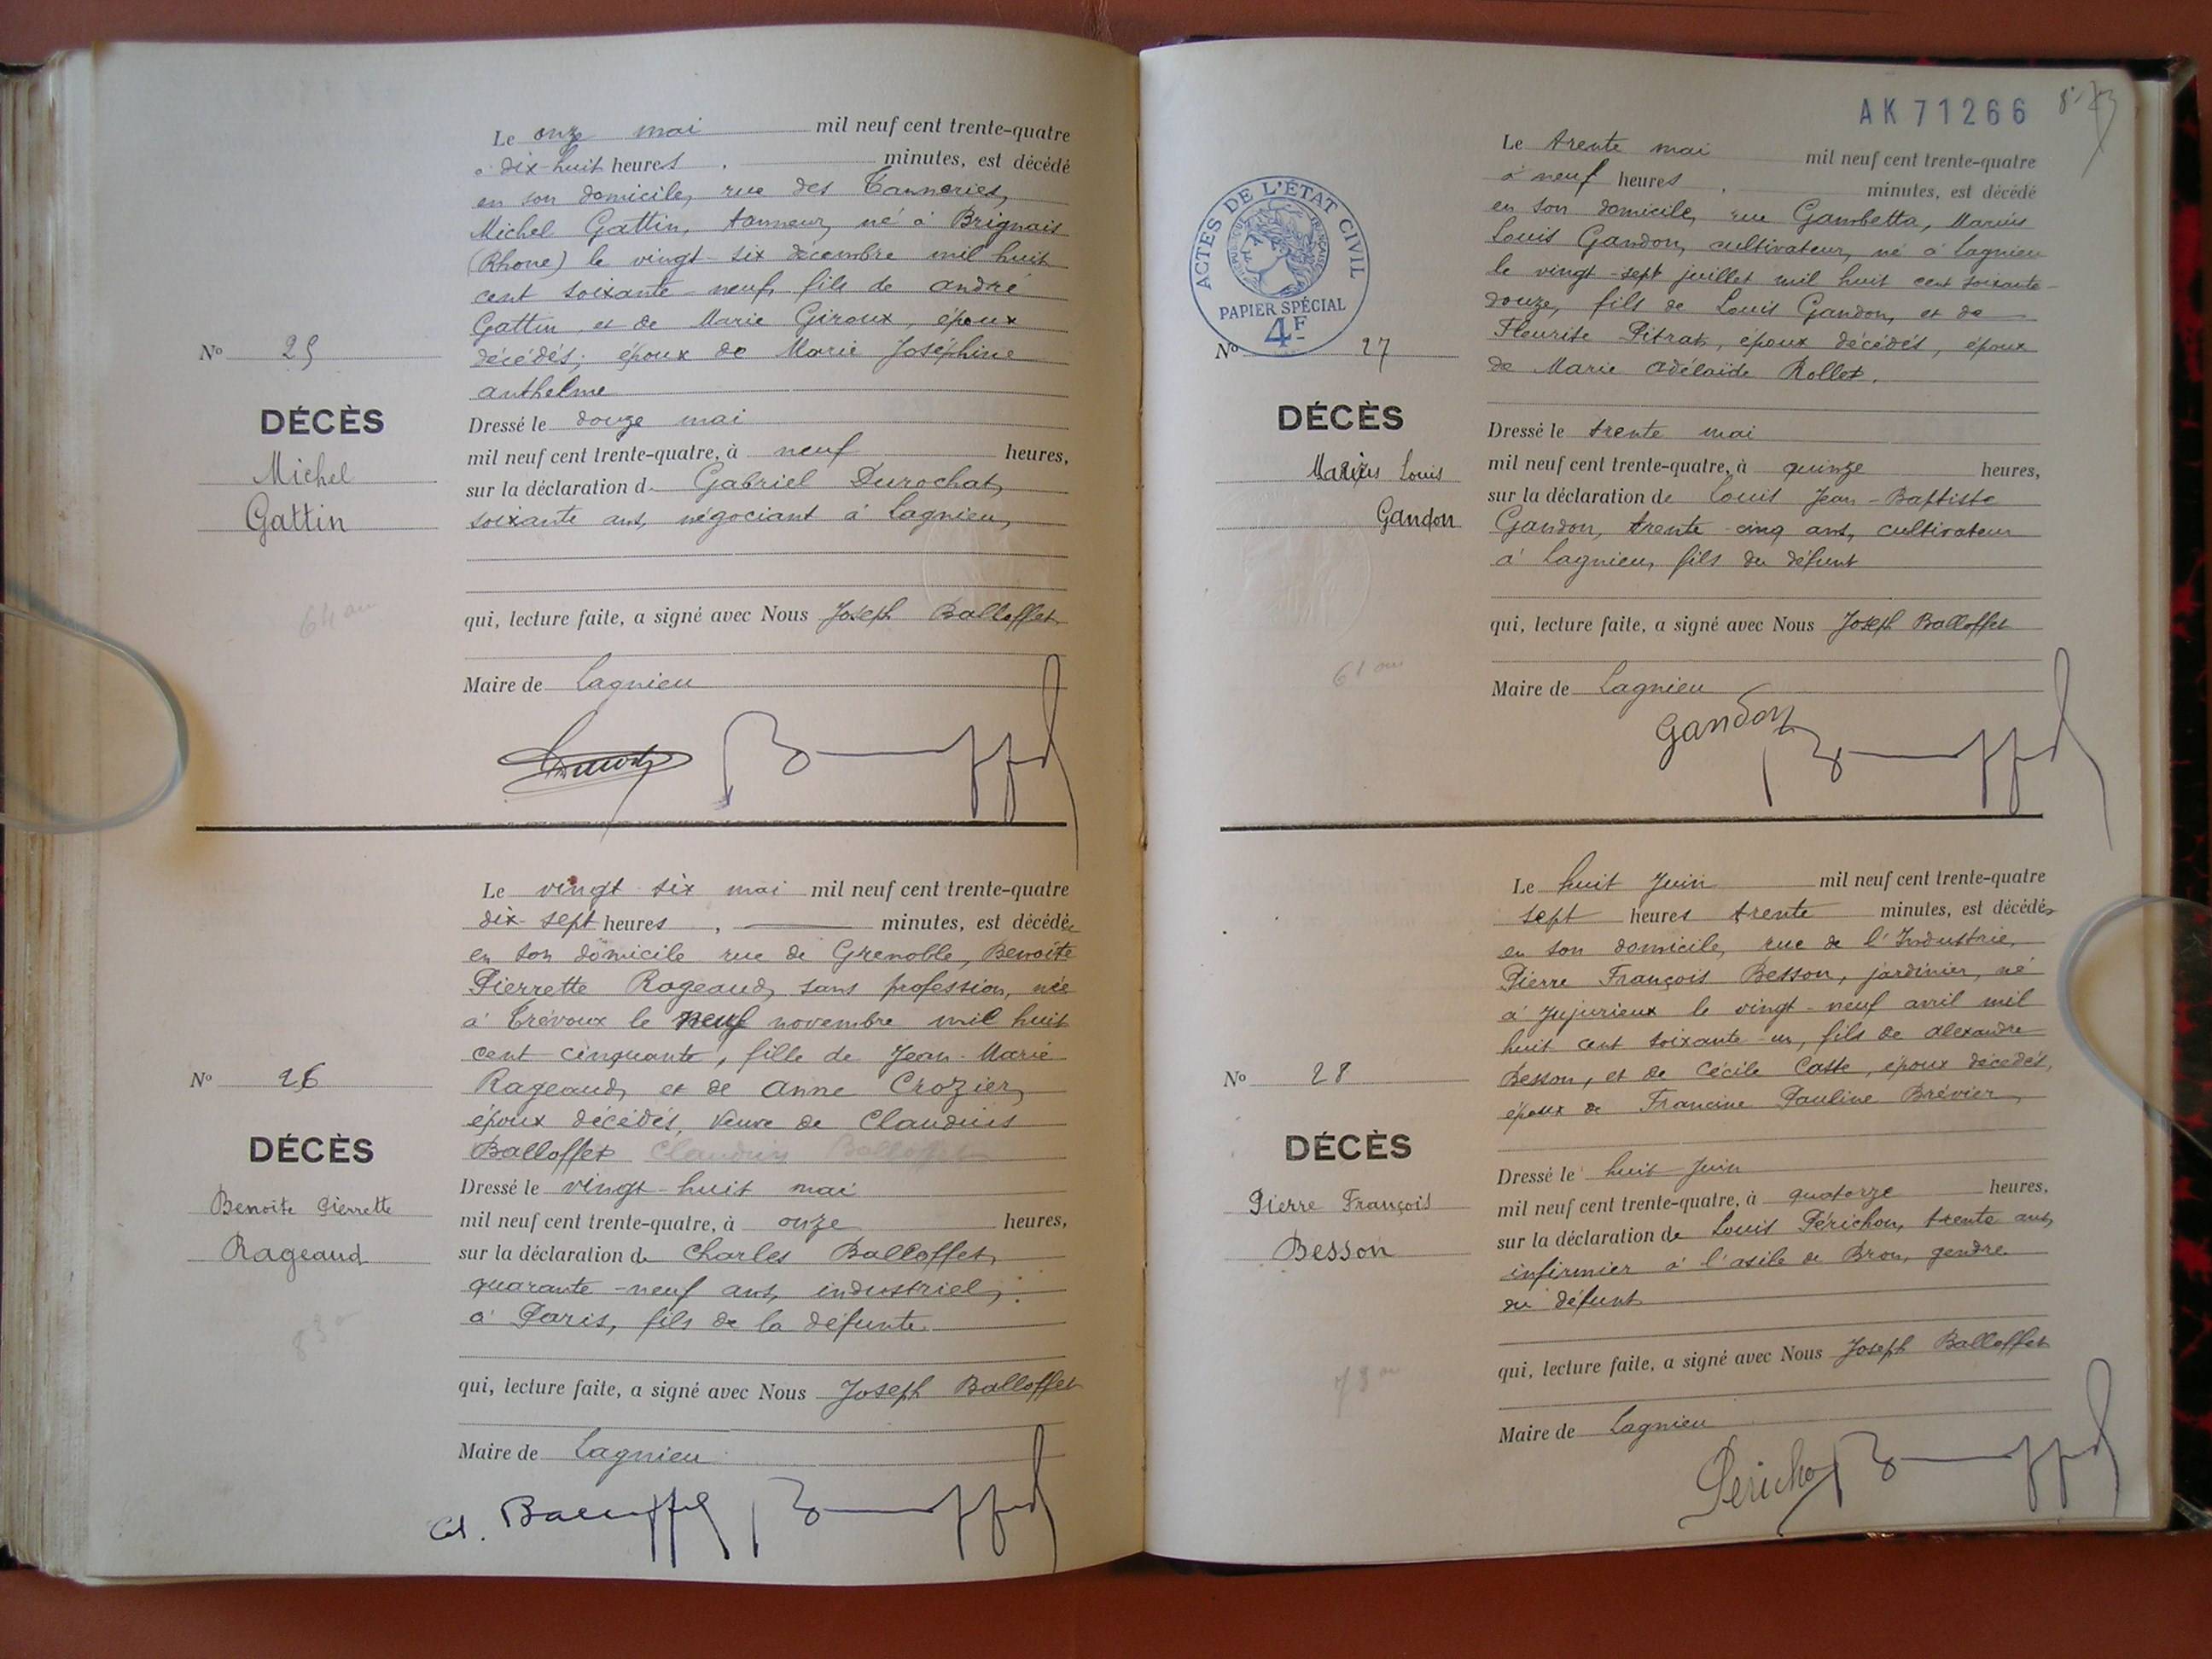 Le onze mai mil neuf cent trente-quatre
à dix-huit heures, minutes, est décédé
en son domicile, rue des Tanneries,
Michel Gattin, tanneur, né à Brignais
(Rhone) le vingt-six décembre mil huit
cent soixante-neuf, fils de André
Gattin, et de Marie Giroux, époux
décédés; époux de Marie Joséphine
Anthelme
No 25
DÉCÈS
Michel
Gattin
64 ans
Dressé le douze mai
mil neuf cent trente-quatre, à neuf heures,
sur la déclaration d Gabriel Durochat,
soixante ans, négociant à Lagnieu,
qui, lecture faite, a signé avec Nous Joseph Balloffet
Maire de Lagnieu
Le vingt six mai mil neuf cent trente-quatre
dix-sept heures, minutes, est décédée
en son domicile rue de Grenoble, Benoite
Pierrette Rageaud, sans profession, née
à Trévoux le neuf novembre mil huit
cent cinquante, fille de Jean-Marie
Rageaud, et de Anne Crozier,
époux décédés, veuve de Claudius
Balloffet Claudius Balloffet
No 26
DÉCÈS
Benoite Pierrette
Rageaud
83
Dressé le vingt-huit mai
mil neuf cent trente-quatre, à onze heures,
sur la déclaration de Charles Balloffet,
quarante-neuf ans, industriel,
à Paris, fils de la défunte
qui, lecture faite, a signé avec Nous Joseph Balloffet
Maire de Lagnieu
AK 71266
ACTES DE L'ÉTAT CIVIL
RÉPUBLIQUE FRANÇAISE
PAPIER SPÉCIAL
4F
Le trente mai mil neuf cent trente-quatre
à neuf heures, minutes, est décédé
en son domicile, rue Gambetta, Marius
Louis Gandon, cultivateur, né à Lagnieu
le vingt-sept juillet mil huit cent soixante-
douze, fils de Louis Gandon, et de
Fleurite Pitrat, époux décédés, époux
de Marie Adélaïde Rollet.
No 27
DÉCÈS
Marius Louis
Gandon
61 ans
Dressé le trente mai
mil neuf cent trente-quatre, à quinze heures,
sur la déclaration de Louis Jean-Baptiste
Gandon, trente-cinq ans, cultivateur
à Lagnieu, fils du défunt
qui, lecture faite, a signé avec Nous Joseph Balloffet
Maire de Lagnieu
Gandon
Le huit Juin mil neuf cent trente-quatre
sept heures trente minutes, est décédé
en son domicile, rue de l'Industrie,
Pierre François Besson, jardinier, né
à Jujurieux le vingt-neuf avril mil
huit cent soixante-un, fils de Alexandre
Besson, et de Cécile Caste, époux décédés,
époux de Francine Pauline Brévier,
No 28
DÉCÈS
Pierre François
Besson
73 ans
Dressé le huit Juin
mil neuf cent trente-quatre, à quatorze heures,
sur la déclaration de Louis Périchon, trente ans,
infirmier à l'asile de Bron, gendre
du défunt
qui, lecture faite, a signé avec Nous Joseph Balloffet
Maire de Lagnieu
Perichon